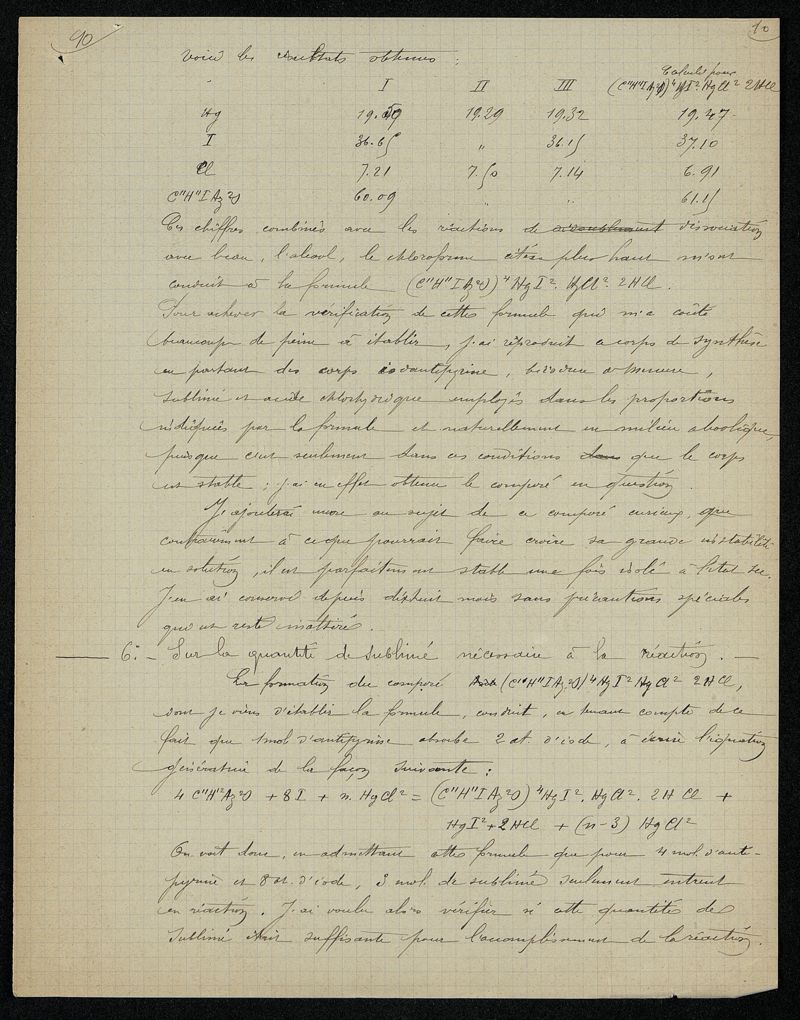 90
10
Voici les résultats obtenus :
I II III Calculé pour (C¹¹H¹¹IAz²O)⁴HgI².HgCl² 2HCl
Hg 19.59 19.29 19.32 19.47
I 36.65 " 36.15 37.10
Cl 7.21 7.50 7.14 6.91
C¹¹H¹¹IAz²O 60.09 " " 61.15
Ces chiffres combinés avec les réactions de dissociation
avec l'eau, l'alcool, le chloroforme citées plus haut m'ont
conduit à la formule (C¹¹H¹¹IAz²O)⁴HgI². HgCl². 2HCl.
Pour achever la vérification de cette formule qui m'a coûté
beaucoup de peine à établir, j'ai reproduit ce corps de synthèse
en partant des corps iodoantipyrine, biiodure de mercure,
sublimé et acide chlorhydrique employés dans les proportions
indiquées par la formule et naturellement en milieu alcoolique,
puisque c'est seulement dans ces conditions que le corps
est stable ; j'ai en effet obtenu le composé en question.
J'ajouterai encore au sujet de ce composé curieux, que
contrairement à ce que pourrait faire croire sa grande instabilité
en solution, il est parfaitement stable une fois isolé à l'état sec.
J'en ai conservé depuis dixhuit mois sans précautions spéciales
qui est resté inaltéré.
6°. - Sur la quantité de sublimé nécessaire à la réaction.
La formation du composé (C¹¹H¹¹IAz²O)⁴HgI² HgCl² 2HCl,
dont je viens d'établir la formule, conduit, en tenant compte de ce
fait que 1 mol. d'antipyrine absorbe 2 at. d'iode, à écrire l'équation
génératrice de la façon suivante :
4 C¹¹H¹²Az²O + 8I + n. HgCl² = (C¹¹H¹¹IAz²O)⁴HgI². HgCl². 2HCl +
HgI² + 2HCl + (n-3) HgCl²
On voit donc, en admettant cette formule que pour 4 mol. d'anti-
pyrine et 8 at. d'iode, 3 mol. de sublimé seulement entrent
en réaction. J'ai voulu alors vérifier si cette quantité de
sublimé était suffisante pour l'accomplissement de la réaction.